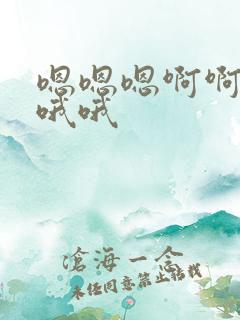 嗯嗯嗯啊啊
哦哦
沧海一念
未经同意禁止转载